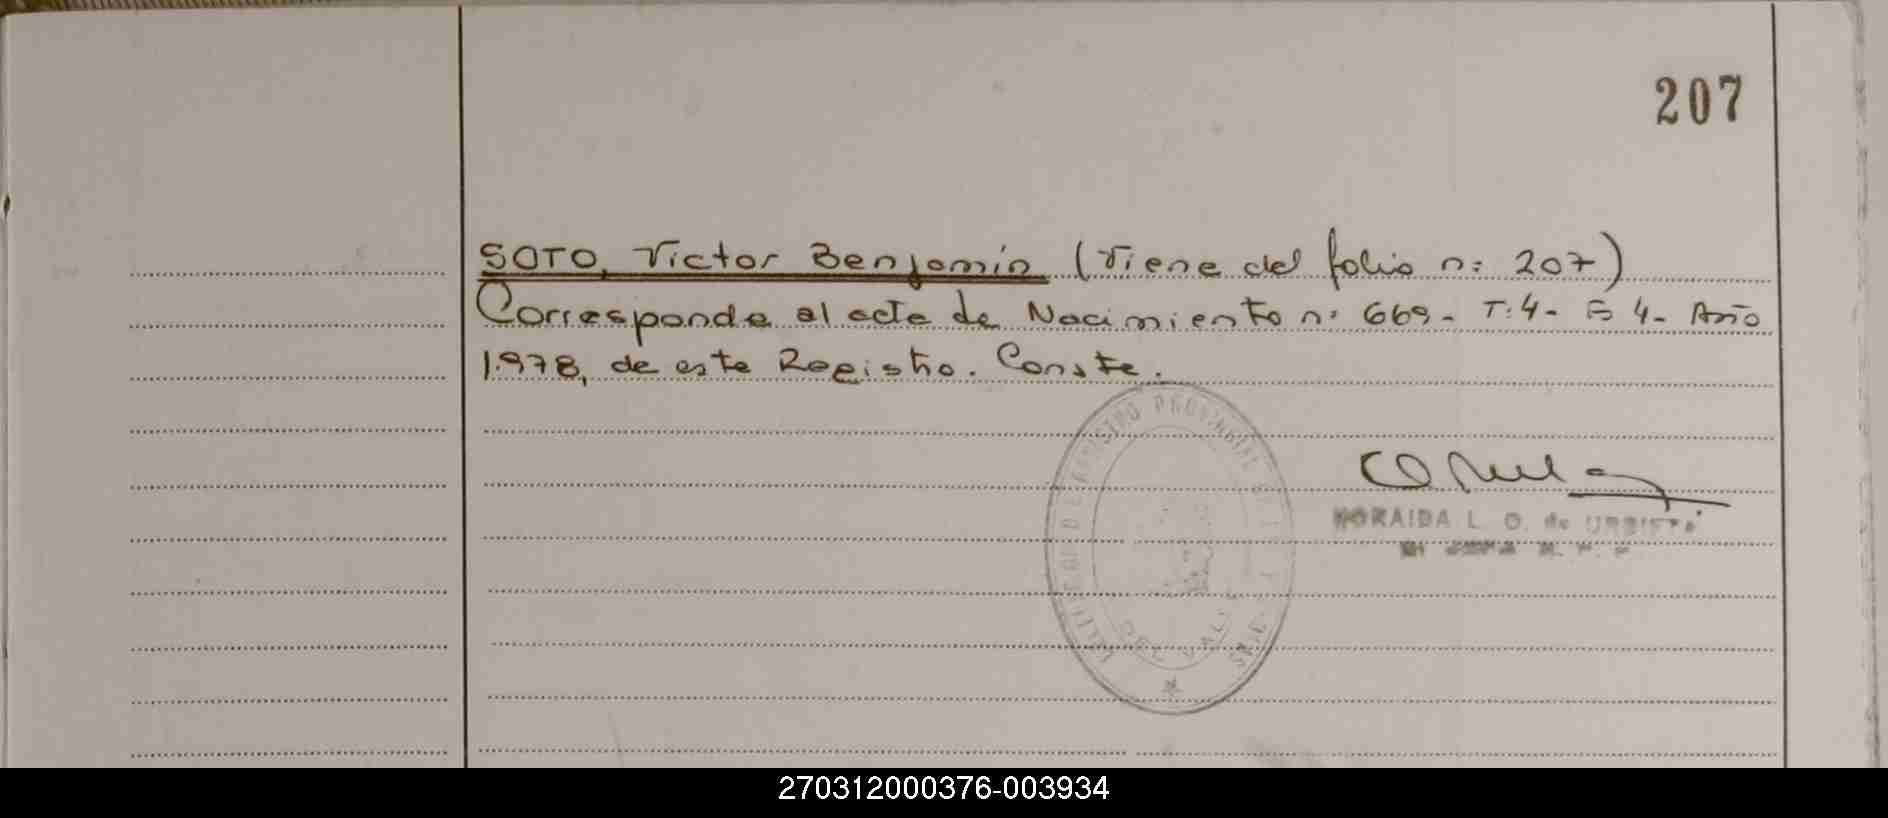 207
SOTO, Victor Benjamin (Viene del folio n: 207)
Corresponde al acta de Nacimiento n: 669- T:4- F: 4- Año
1.978, de este Registro. Conste.
REGISTRO PROVINCIAL
DEL VALLE
NORAIDA L. O. de URBIETA
270312000376-003934